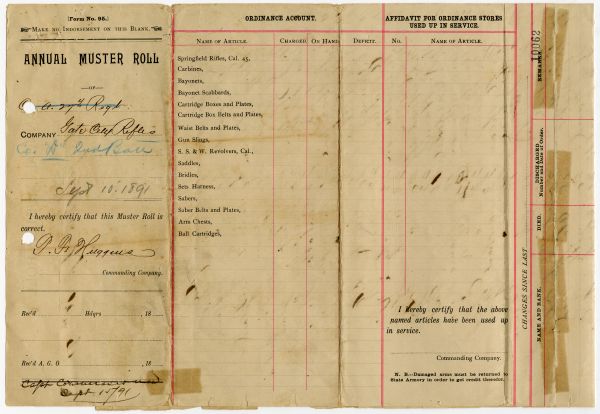 (Form No. 95.)
MAKE NO INDORSEMENT ON THIS BLANK.
ANNUAL MUSTER ROLL
—OF—
COMPANY Gate City Rifles
Co. "D" 2nd Batt
Sept 10. 1891
I hereby certify that this Muster Roll is
correct.
Huggins
Commanding Company.
Rec'd Hdqrs 18
Rec'd A. G. O. 18
Capt Commanding
ORDINANCE ACCOUNT.
NAME OF ARTICLE. CHARGED. ON HAND. DEFICIT.
Springfield Rifles, Cal. 45,
Carbines,
Bayonets,
Bayonet Scabbards,
Cartridge Boxes and Plates,
Cartridge Box Belts and Plates,
Waist Belts and Plates,
Gun Slings,
S. S. & W. Revolvers, Cal.,
Saddles,
Bridles,
Sets Harness,
Sabers,
Saber Belts and Plates,
Arm Chests,
Ball Cartridges,
AFFIDAVIT FOR ORDINANCE STORES
USED UP IN SERVICE.
No. NAME OF ARTICLE.
I hereby certify that the above
named articles have been used up
in service.
Commanding Company.
N. B.—Damaged arms must be returned to
State Armory in order to get credit therefor.
CHANGES SINCE LAST
10062
REMARKS
DISCHARGED.
Number and Date of Order.
DIED.
NAME AND RANK.